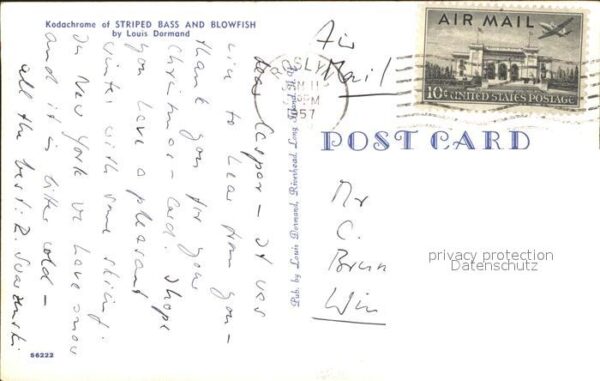 Kodachrome of STRIPED BASS AND BLOWFISH
by Louis Dormand
Dear Caspar – It was
nice to hear from you –
thank you for your
Christmas – Card. I hope
you have a pleasant
winter with some skiing.
In New York we have snow
and it is bitter cold –
all the best:
S6222
Pub. by Louis Dormand, Riverhead, Long Island, N. Y.
ROSLYN
11
PM
1957
Air
Mail
AIR MAIL
10¢ UNITED STATES POSTAGE
POST CARD
Mr
C.
privacy protection
Datenschutz